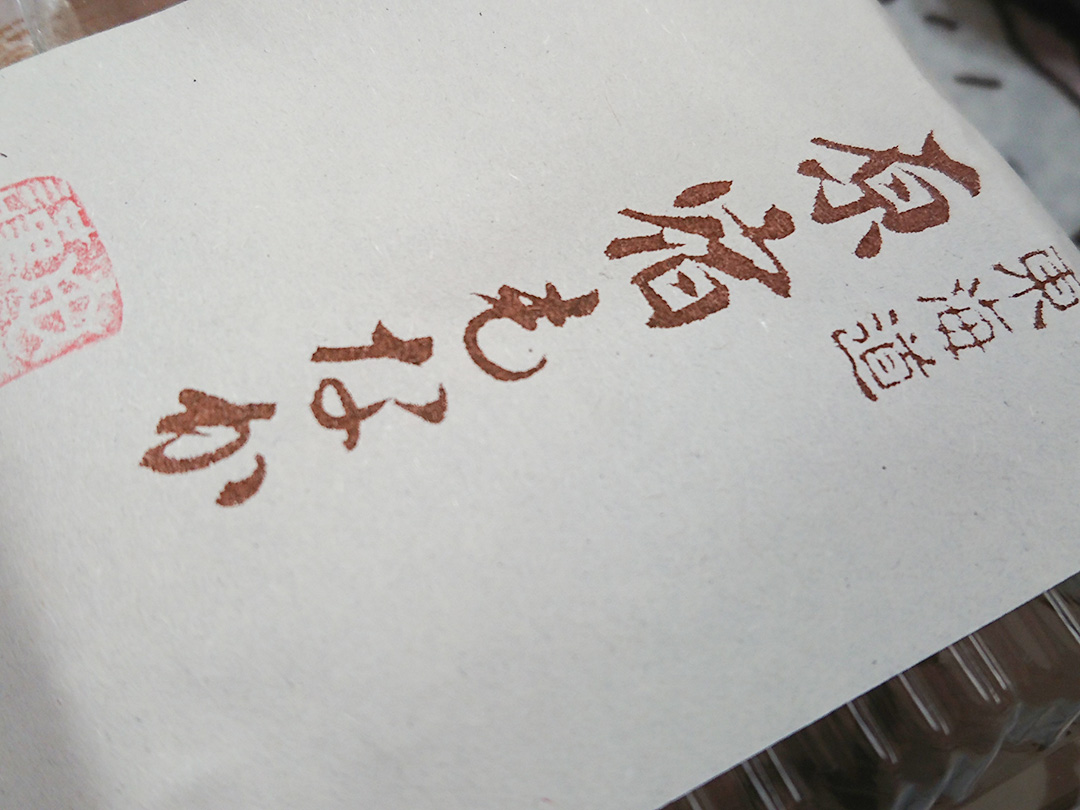 東海道
原宿もなか